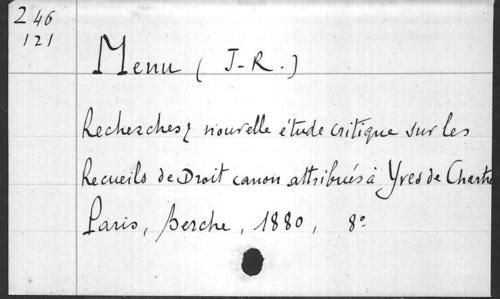 246
121
Menu (J-R.)
Recherches, nouvelle étude critique sur les
Recueils de Droit canon attribués à Yves de Chartre
Paris, Berche, 1880, 8º